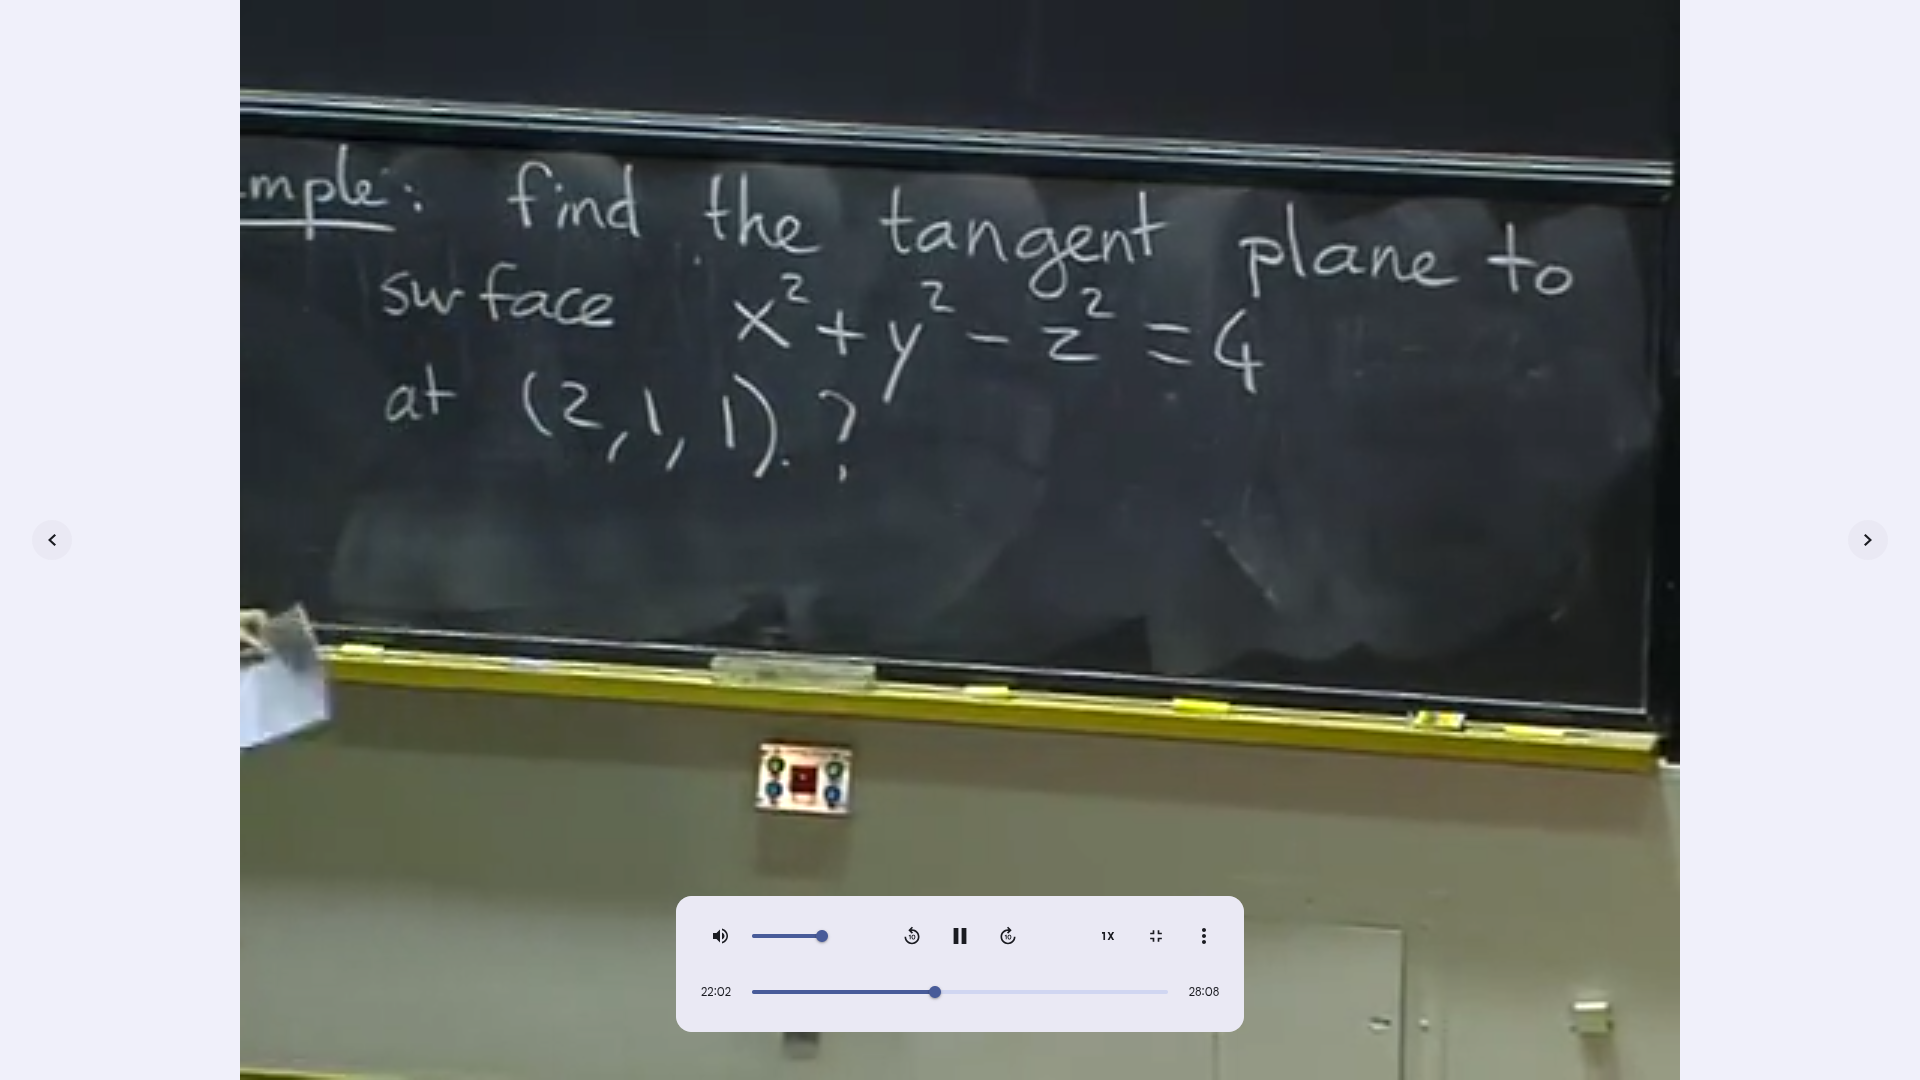 mple: find the tangent plane to
surface x² + y² - z² = 4
at (2, 1, 1). ?
1X
22:02
28:08